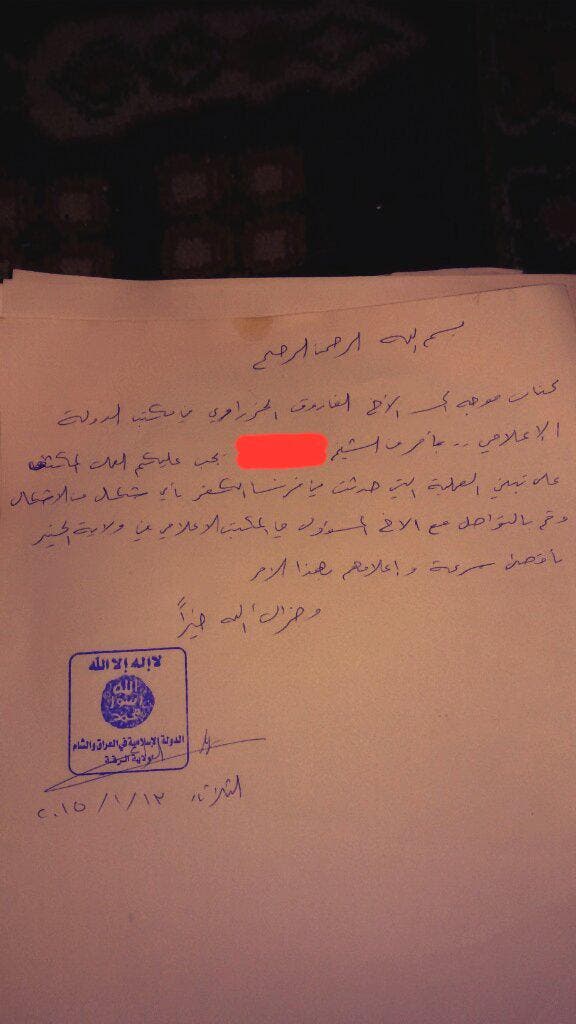 بسم الله الرحمن الرحيم
كتاب موجه إلى الأخ الفاروق الجزراوي في مكتب الدولة
الإعلامي .. بأمر من الشيخ يجب عليكم العمل المكثف
على تبني العملية التي حدثت في فرنسا الكفر بأي شكل من الأشكال
وقم بالتواصل مع الأخ المسؤول في المكتب الإعلامي في ولاية الخير
بأقصى سرعة وإعلامهم بهذا الأمر
وجزاك الله خيراً
لا إله إلا الله
الله
رسول
محمد
الدولة الإسلامية في العراق والشام
ولاية الرقة
الثلاثاء ٢٠١٥/١/١٣